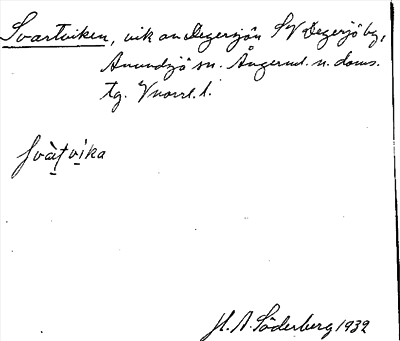 Svartviken, vik av Degersjön SV Degersjö by,
Anundsjö sn. Ångerml. n. doms.
tg. Vnorrl. l.
svàtvika
H. A. Söderberg 1932